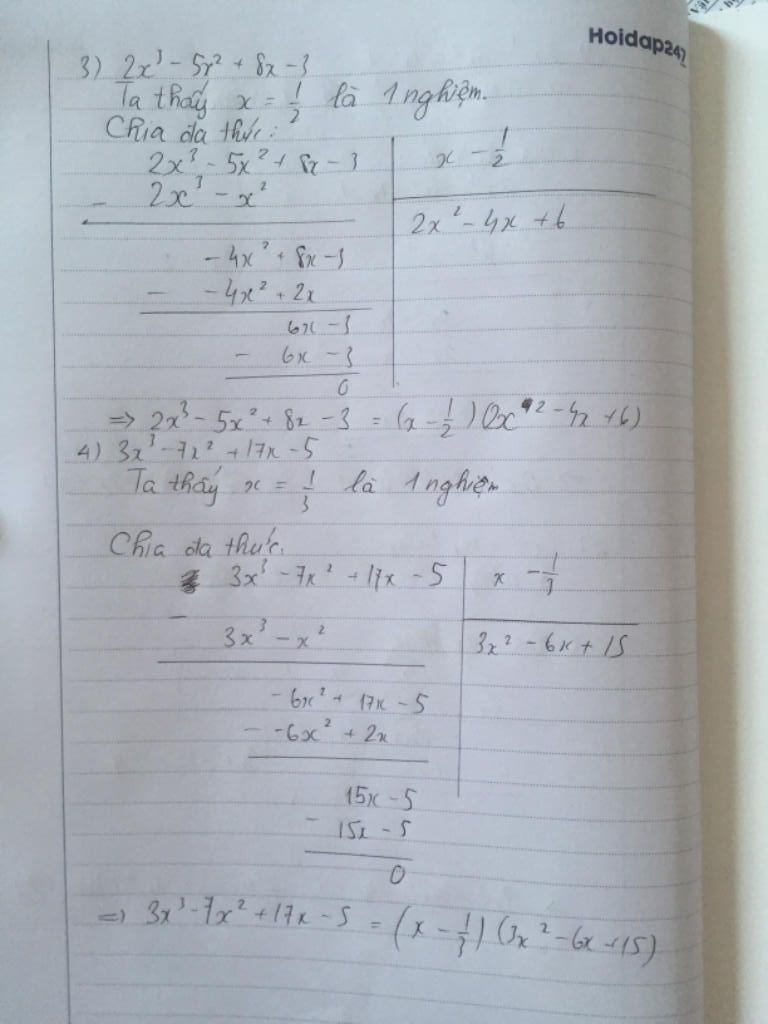 Hoidap247
3) 2x³ - 5x² + 8x - 3
Ta thấy x = 1/2 là 1 nghiệm.
Chia đa thức:
2x³ - 5x² + 8x - 3 | x - 1/2
- 2x³ - x² | 2x² - 4x + 6
- 4x² + 8x - 3
- - 4x² + 2x
6x - 3
- 6x - 3
0
=> 2x³ - 5x² + 8x - 3 = (x - 1/2)(2x² - 4x + 6)
4) 3x³ - 7x² + 17x - 5
Ta thấy x = 1/3 là 1 nghiệm
Chia đa thức.
3x³ - 7x² + 17x - 5 | x - 1/3
- 3x³ - x² | 3x² - 6x + 15
- 6x² + 17x - 5
- - 6x² + 2x
15x - 5
- 15x - 5
0
=> 3x³ - 7x² + 17x - 5 = (x - 1/3)(3x² - 6x + 15)